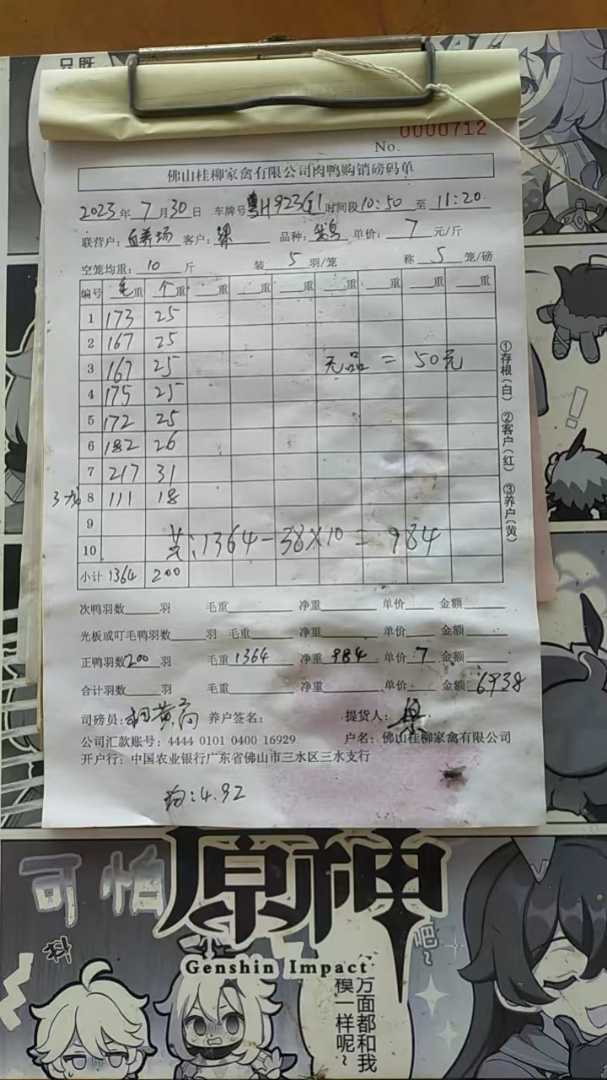 只既
0000712
No.
佛山桂柳家禽有限公司肉鸭购销磅码单
2023年 7月30日 车牌号 粤H923G1 时间段 10:50 至 11:20
联营户: 自养场 客户: 品种: 单价: 7 元/斤
空笼均重: 10 斤 装 5 羽/笼 称 5 笼/磅
编号 毛重 个重 重 重 重 重 重 重 重
1 173 25
2 167 25
3 167 25 无品 = 50元
4 175 25
5 172 25
6 182 26
7 217 31
3 8 111 18
9
10 共:1364-38×10=984
小计 1364 200
①存根(白) ②客户(红) ③养户(黄)
次鸭羽数 羽 毛重 净重 单价 金额
光板或叮毛鸭羽数 羽 毛重 净重 单价 金额
正鸭羽数 200 羽 毛重 1364 净重 984 单价 7 金额
合计羽数 羽 毛重 净重 单价 金额 6938
司磅员: 养户签名: 提货人:
公司汇款账号: 4444 0101 0400 16929 户名: 佛山桂柳家禽有限公司
开户行: 中国农业银行广东省佛山市三水区三水支行
均:4.92
可怕
原神
Genshin Impact
吧~
万面都和我
模一样呢~